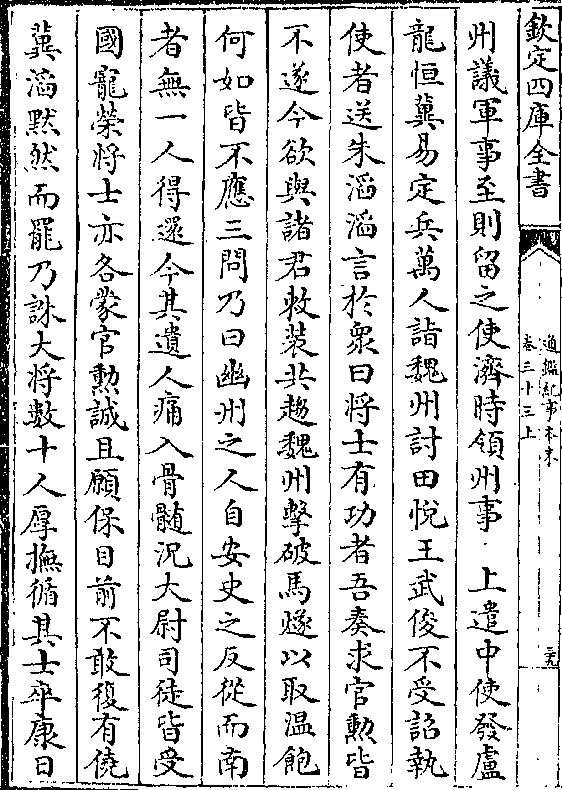 欽定四庫全書
通鑑紀事本末
卷三十三上
州議軍事至則留之使濟時領州事 上遣中使發盧
龍恒冀易定兵萬人詣魏州討田悅王武俊不受詔執
使者送朱滔滔言於衆曰將士有功者吾奏求官勲皆
不遂今欲與諸君敕裝共趨魏州擊破馬燧以取溫飽
何如皆不應三問乃曰幽州之人自安史之反從而南
者無一人得還今其遺人痛入骨髓況大尉司徒皆受
國寵榮將士亦各蒙官勲誠且願保目前不敢復有僥
冀滔黙然而罷乃誅大将數十人厚撫循其士卒康日